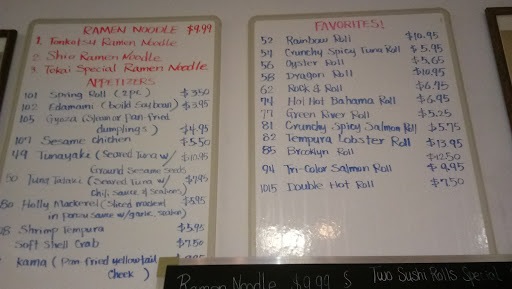 RAMEN NOODLE $9.99
1. Tonkotsu Ramen Noodle
2. Shio Ramen Noodle
3. Tokai Special Ramen Noodle
APPETIZERS
101 Spring Roll (2pc) $3.50
102 Edamami (boild Soybean) $3.95
105 Gyoza (Steam or pan-fried
dumplings) $4.95
107 Sesame chicken $5.50
49 Tunayaki (Seared Tuna w/ $10.95
Ground Sesame seeds
50 Tuna Tataki (Seared Tuna w/ $9.95
Chili sauce & scallions)
80 Holly Mackerel (Sliced mackerel $5.95
in ponzu sauce w/garlic, scallion)
Shrimp Tempura $5.95
Soft Shell Crab $7.50
Kama (Pan fried yellowtail
Cheek)
FAVORITES!
52 Rainbow Roll $10.95
54 Crunchy Spicy Tuna Roll $5.95
56 Oyster Roll $5.65
58 Dragon Roll $10.95
62 Rock & Roll $6.95
74 Hot Hot Bahama Roll $6.95
77 Green River Roll $5.25
81 Crunchy Spicy Salmon Roll $5.75
82 Tempura Lobster Roll $13.95
85 Brooklyn Roll $12.50
94 Tri-Color Salmon Roll $9.95
1015 Double Hot Roll $7.50
Ramen Noodle $9.99 $ Two Sushi Rolls Special